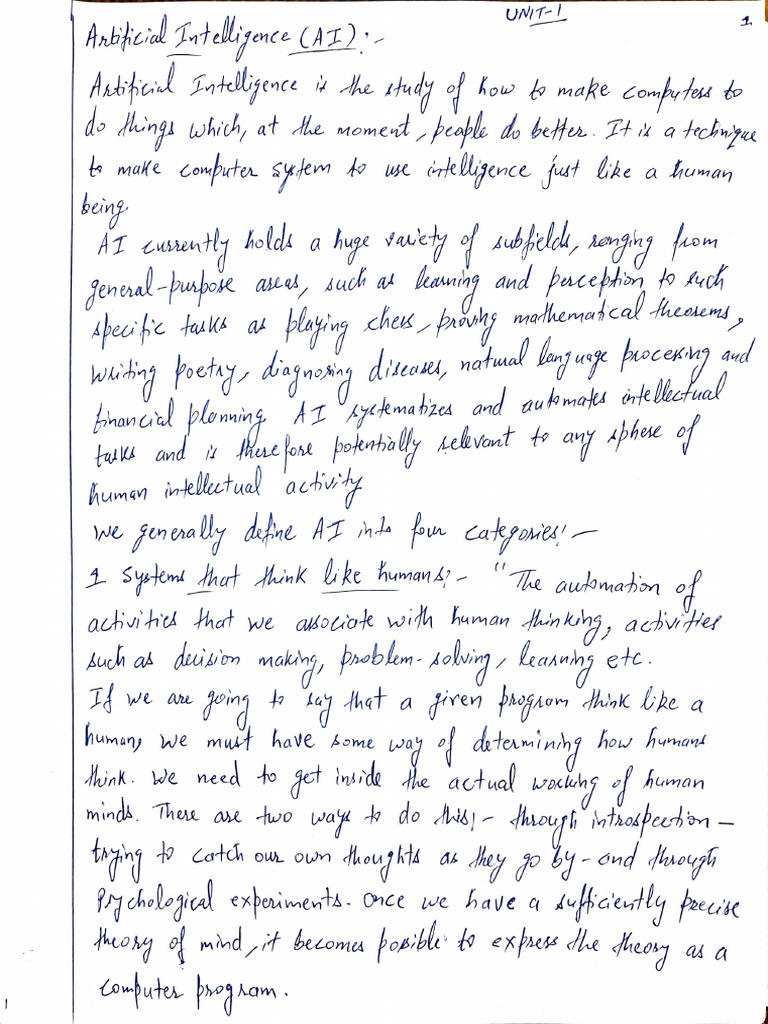 UNIT-1
1
Artificial Intelligence (AI):-
Artificial Intelligence is the study of how to make computers to
do things which, at the moment, people do better. It is a technique
to make computer system to use intelligence just like a human
being.
AI currently holds a huge variety of subfields, ranging from
general-purpose areas, such as learning and perception to such
specific tasks as playing chess, proving mathematical theorems,
writing poetry, diagnosing diseases, natural language processing and
financial planning. AI systematizes and automates intellectual
tasks and is therefore potentially relevant to any sphere of
human intellectual activity
We generally define AI into four categories:-
1 Systems that think like humans:- "The automation of
activities that we associate with human thinking, activities
such as decision making, problem-solving, learning etc.
If we are going to say that a given program think like a
human, we must have some way of determining how humans
think. We need to get inside the actual working of human
minds. There are two ways to do this:- through introspection-
trying to catch our own thoughts as they go by-and through
psychological experiments. Once we have a sufficiently precise
theory of mind, it becomes possible to express the theory as a
computer program.